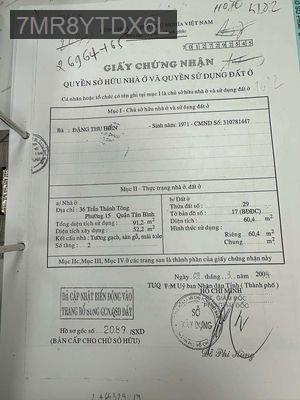 7MR8YTDX6L
NGHĨA VIỆT NAM
26964-165
GIẤY CHỨNG NHẬN
QUYỀN SỞ HỮU NHÀ Ở VÀ QUYỀN SỬ DỤNG ĐẤT Ở
Cá nhân hoặc tổ chức có tên ghi tại mục I là chủ sở hữu nhà ở và sử dụng đất ở
Mục I - Chủ sở hữu nhà ở và sử dụng đất ở
Bà : ĐẶNG THU HIỀN - Sinh năm: 1971 - CMND Số: 310781447
Mục II - Thực trạng nhà ở, đất ở
a/ Nhà ở
Địa chỉ : 36 Trần Thánh Tông
Phường 15 Quận Tân Bình
Tổng diện tích sử dụng : 91,2 m²
Diện tích xây dựng : 52,2 m²
Kết cấu nhà : Tường gạch, sàn gỗ, mái tole
Số tầng : 2
b/ Đất ở
Thửa đất số : 29
Tờ bản đồ số : 17 (BĐĐC)
Diện tích : 60,4 m²
Hình thức sử dụng:
Riêng : 60,4 m²
Chung : m²
Mục IIc, Mục III, Mục IV ở các trang sau là thành phần của giấy chứng nhận này
Ngày
TUQ Ủy ban Nhân dân Tỉnh (Thành phố)
HỒ CHÍ MINH
GIÁM ĐỐC
PHÓ GIÁM ĐỐC
ĐÃ CẬP NHẬT BIẾN ĐỘNG VÀO
TRANG BỔ SUNG GCNQSD ĐẤT
SỞ
XÂY DỰNG
Hồ sơ gốc số 2089/SXD
(BẢN CẤP CHO CHỦ SỞ HỮU)
Đỗ Phi Hùng